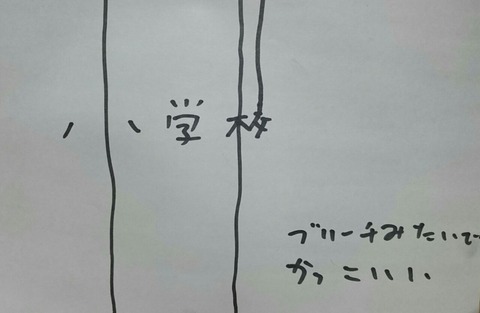 小学校
ブリーチみたいで
かっこいい